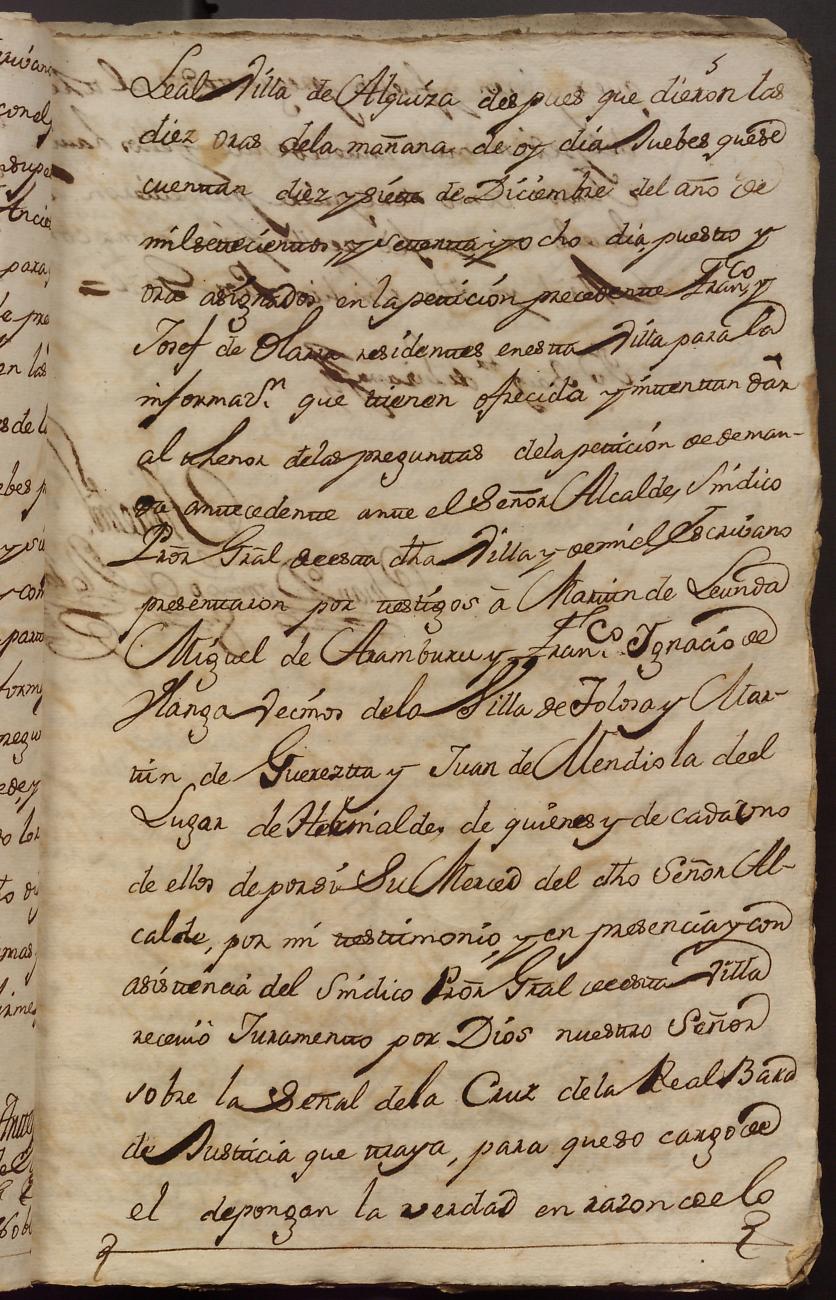 5
Leal Villa de Alquiza despues que dieron las
diez oras dela mañana de oy dia Juebes que se
cuentan diez y siete de Diciembre del año de
mil setecientos, y setenta, y ocho dia puesto y
= ora asignados en la petición precedente Fran,,co y
Josef de Olarra residentes en esta Villa para la
informaz.n que tienen ofrecida y intentan dàr
al thenor delas preguntas dela petición de deman-
da antecedente ante el Señor Alcalde, Sindico
Pror Gral de esta dha Villa y de mi el Escribano
presentaron por testigos à Martin de Leunda
Miguel de Aramburu y Fran.co Ignacio de
Yланga Vecinos dela Villa de Tolosa y Mar-
tin de Guerezta y Juan de Mendiola de el
Lugar de Hernialde, de quienes y de cada Uno
de ellos de por si Su Merced del dho Señor Al-
calde, por mi testimonio, y en presencia y con
asistencia del Sindico Pror Gral de esta Villa
recevió Juramento por Dios nuestro Señor
sobre la Señal dela Cruz dela Real Bara
de Justicia que traya, para que so cargo de
el depongan la verdad en razon de lo